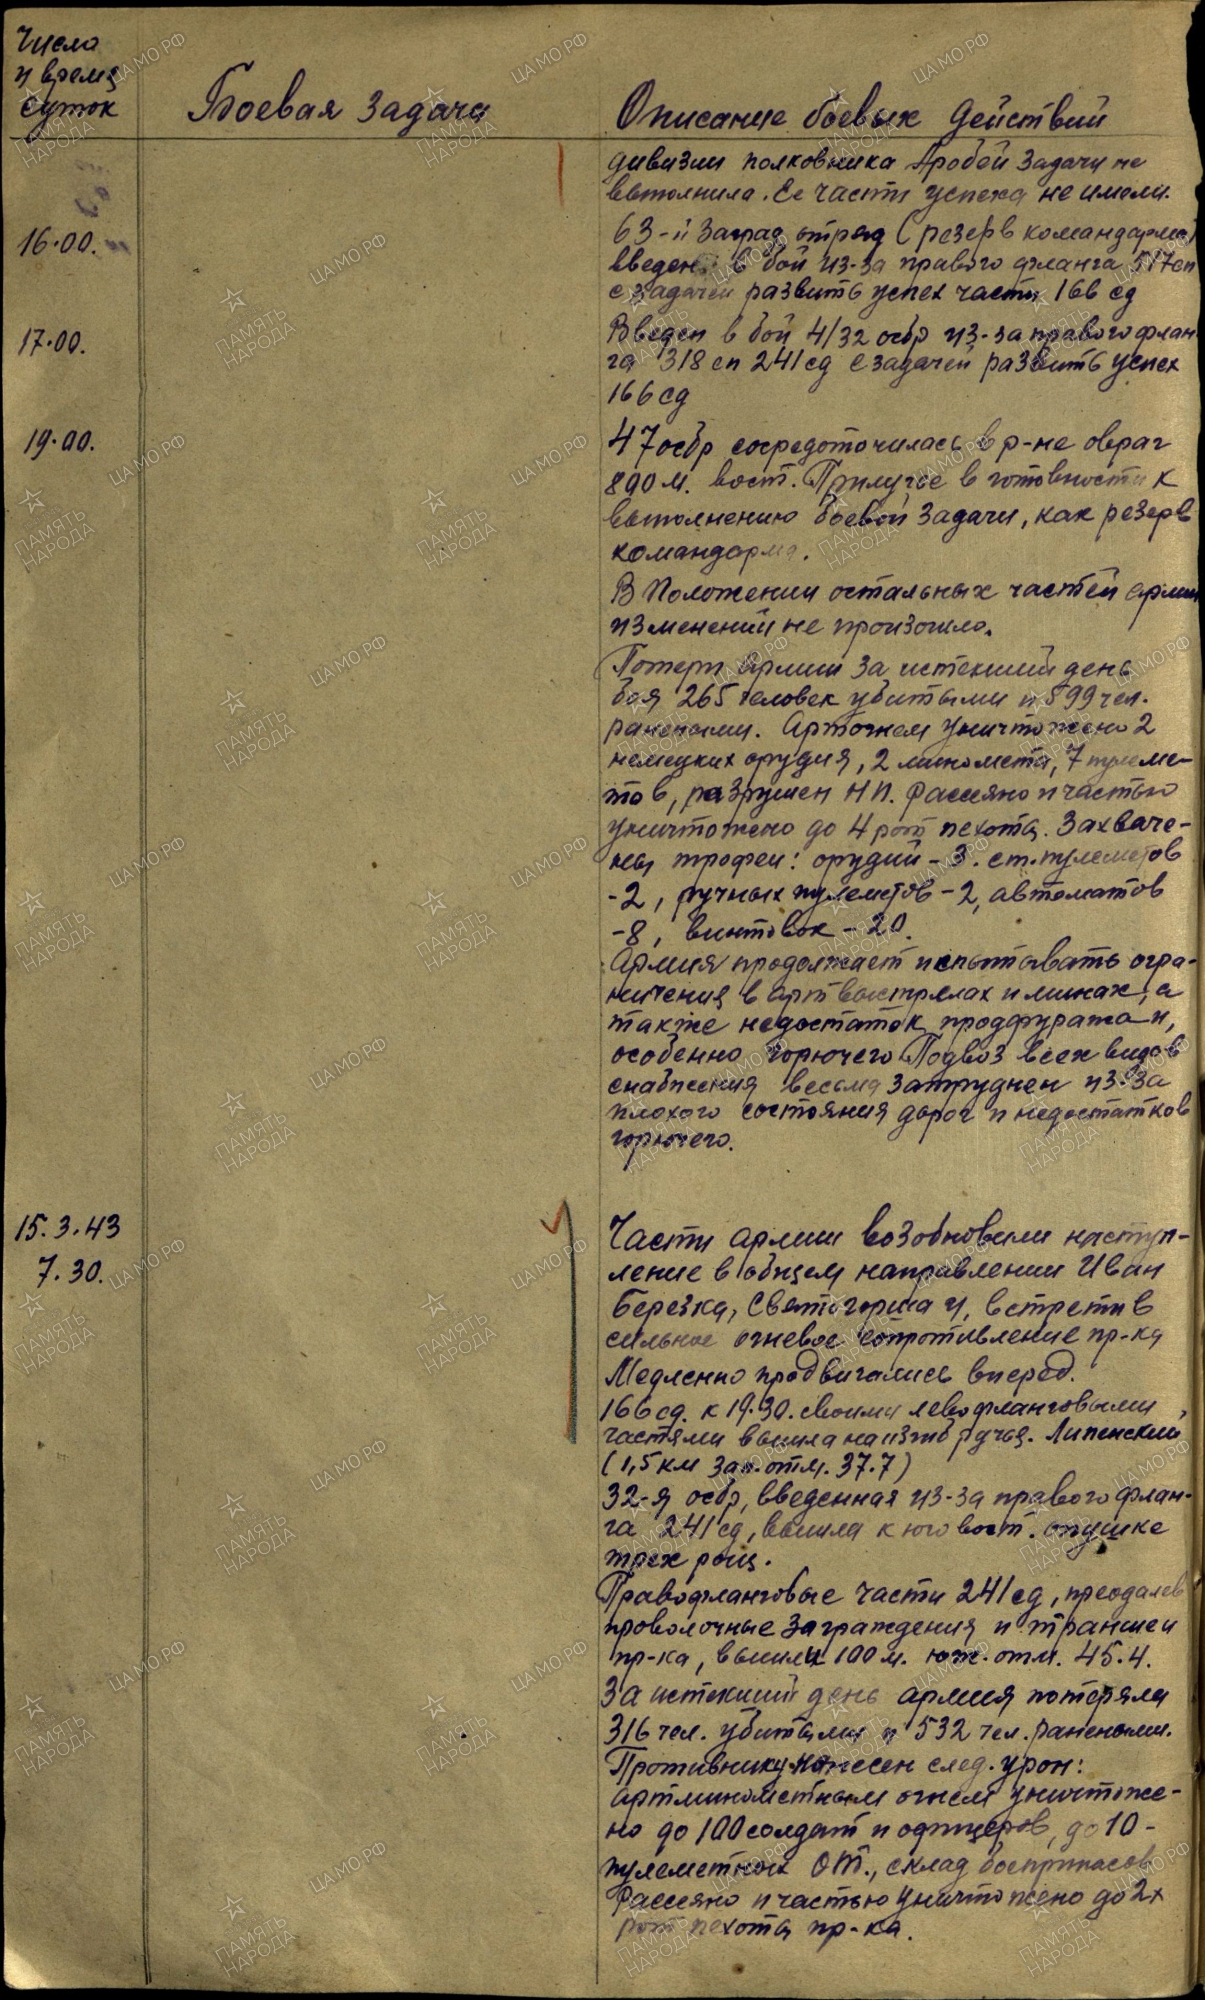 Число
и время
суток
Боевая задача
Описание боевых действий
дивизии полковника Арабей задачи не
выполнила. Ее части успеха не имели.
16.00.
63-й заград.отряд (резерв командарма)
введен в бой из-за правого фланга 517сп
с задачей развить успех части 166 сд
17.00.
Введен в бой 4/32 осбр из-за правого флан
га 318 сп 241сд с задачей развить успех
166сд
19.00.
47осбр сосредоточилась в р-не овраг
800м. вост. Прилучье в готовности к
выполнению боевой задачи, как резерв
командарма.
В положении остальных частей армии
изменений не произошло.
Потери армии за истекший день
боя 265 человек убитыми и 599 чел.
ранеными. Артогнем уничтожено 2
немецких орудия, 2 миномета, 7 пулеме-
тов, разрушен НП. Рассеяно и частью
уничтожено до 4 рот пехоты. Захваче-
ны трофеи: орудий - 3. ст.пулеметов
-2, ручных пулеметов - 2, автоматов
-8, винтовок - 20.
Армия продолжает испытывать огра-
ничения в артвыстрелах и минах, а
также недостаток продфуража и,
особенно горючего. Подвоз всех видов
снабжения весьма затруднен из-за
плохого состояния дорог и недостатков
горючего.
15.3.43
7.30.
Части армии возобновили наступ-
ление в общем направлении Иван
Березка, Святогорша и, встретив
сильное огневое сопротивление пр-ка
медленно продвигались вперед.
166сд. к 19.30. своими левофланговыми
частями вышла на изгиб ручья. Липенский
(1,5км зап.отм. 37.7)
32-я осбр, введенная из-за правого флан-
га 241сд, вышла к юговост. опушке
трех рощ.
Правофланговые части 241сд, преодолев
проволочные заграждения и траншеи
пр-ка, вышли 100м. юж.отм. 45.4.
За истекший день армия потеряла
316 чел. убитыми и 532 чел. ранеными.
Противнику нанесен след. урон:
артминометным огнем уничтоже-
но до 100 солдат и офицеров, до 10-
пулеметных ОТ., склад боеприпасов
Рассеяно и частью уничтожено до 2х
рот пехоты пр-ка.